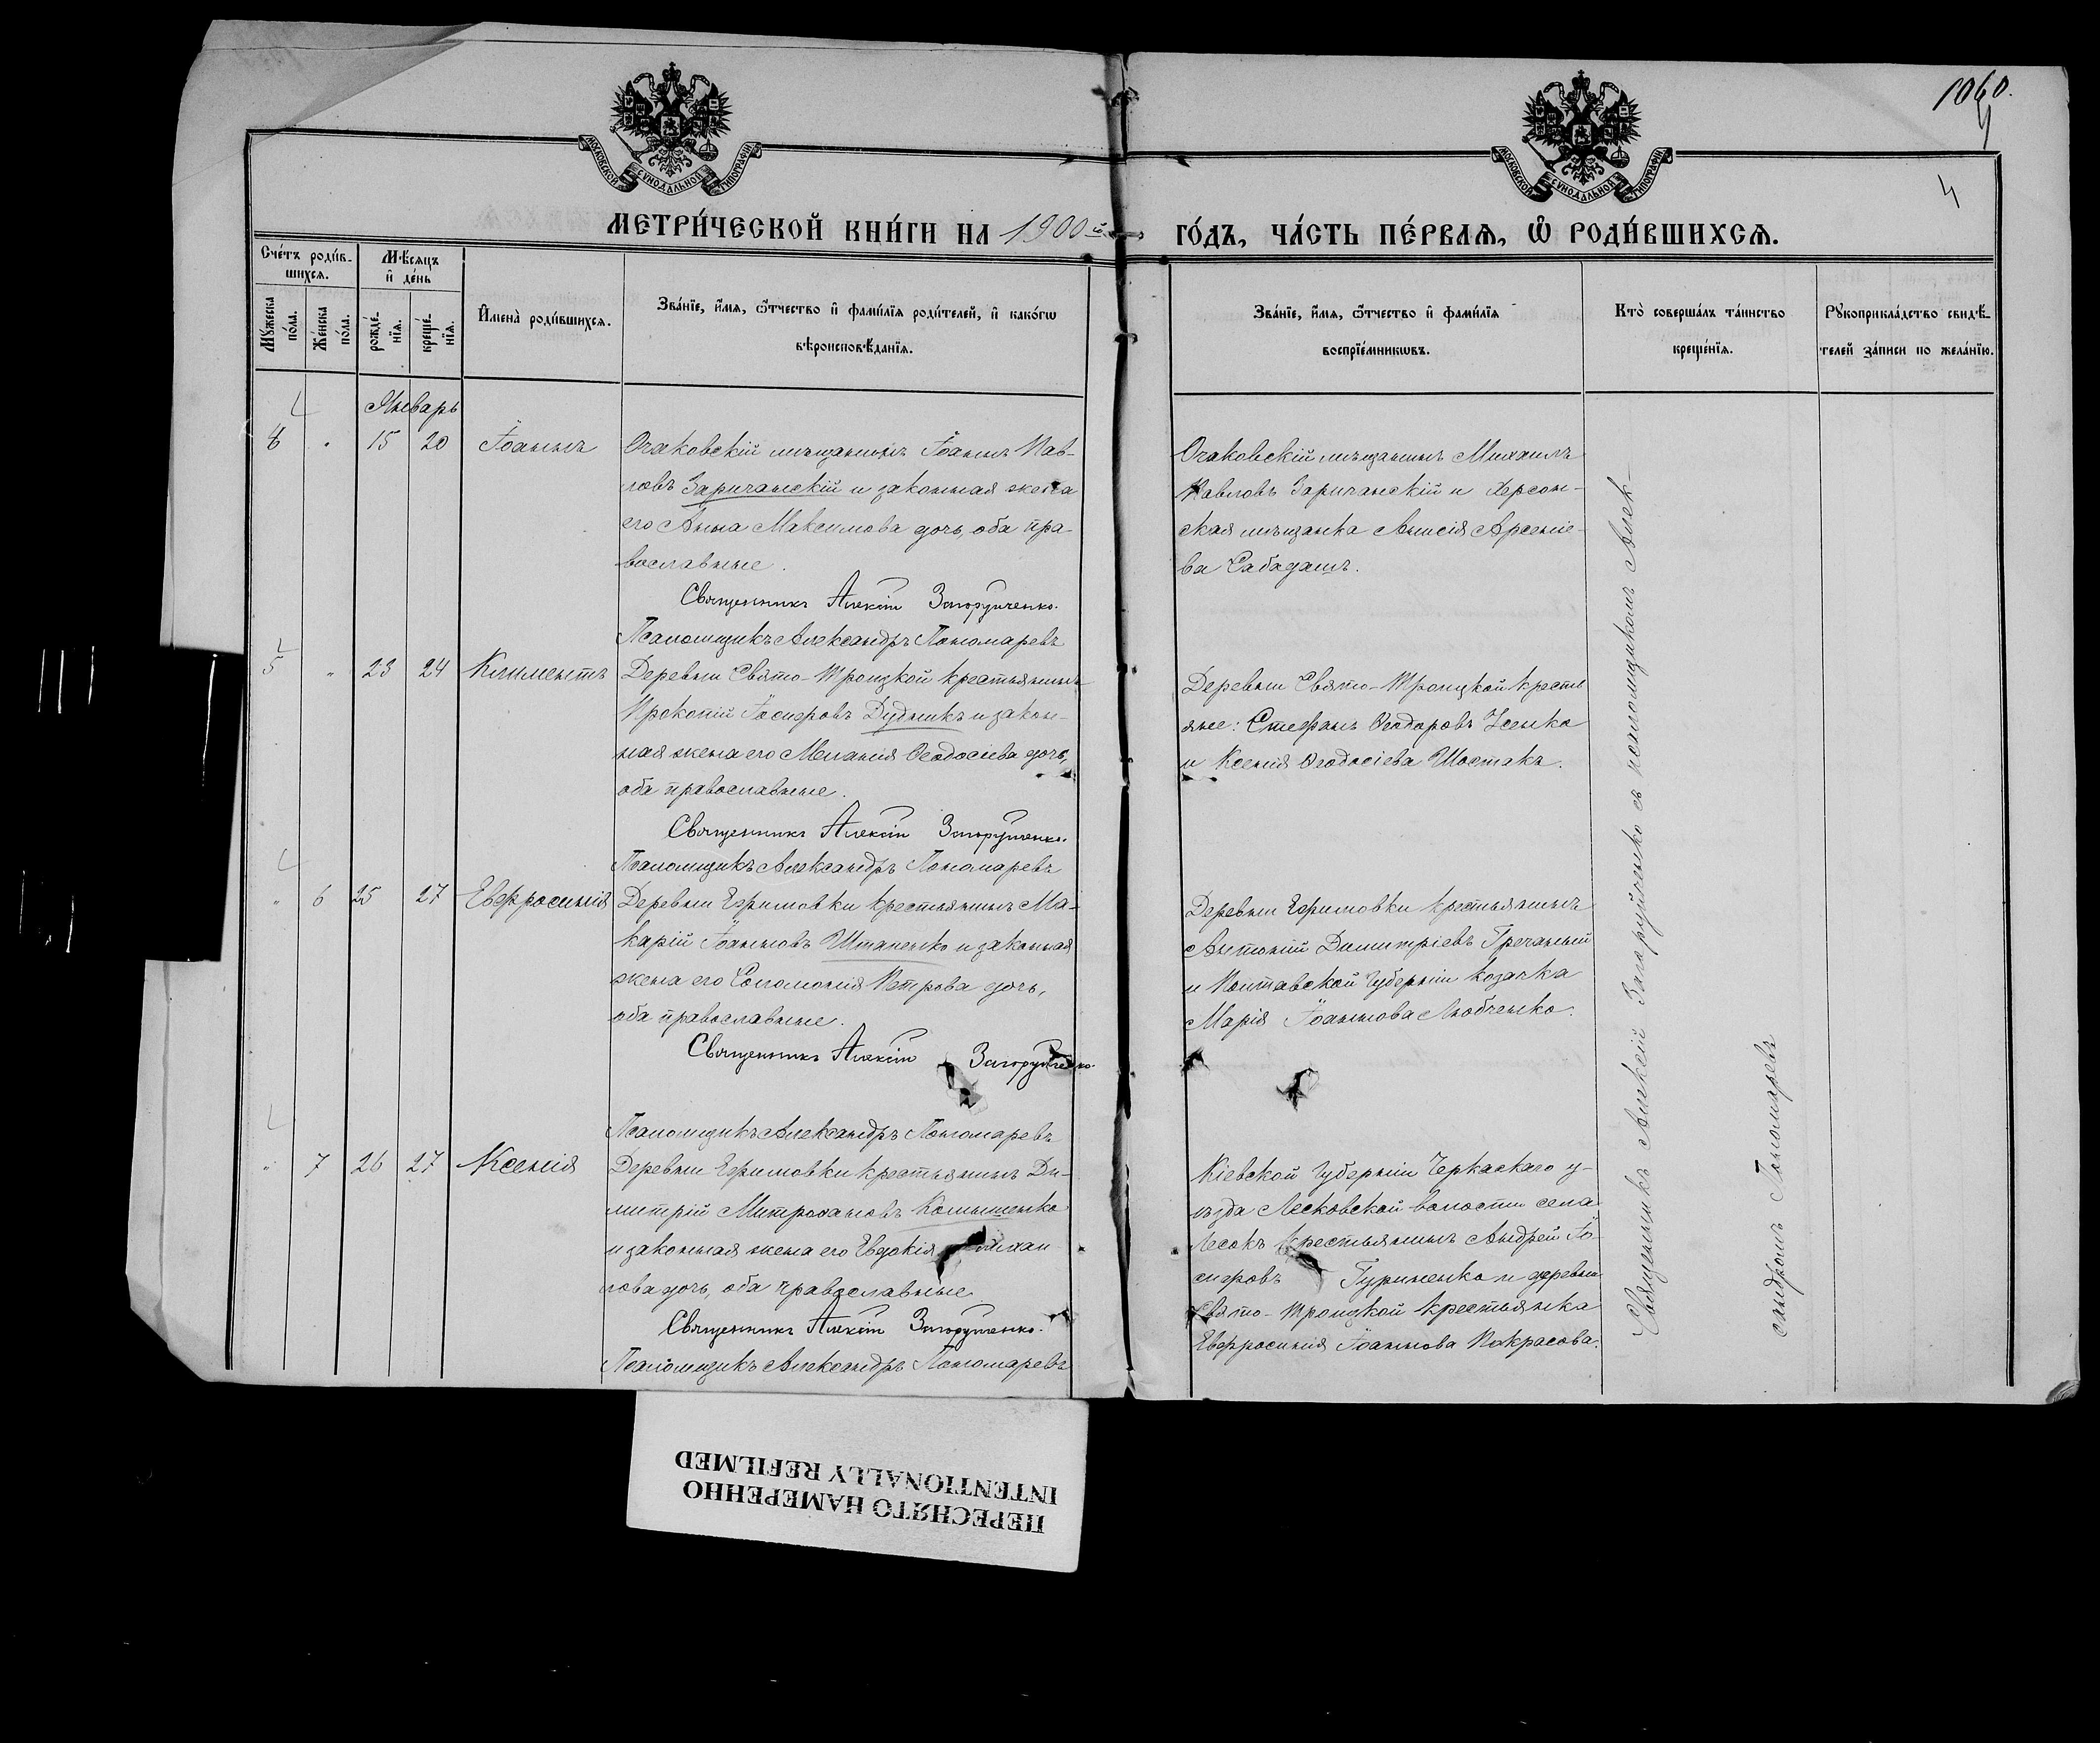 1060.
4
МОСКОВСКОЙ СУНОДАЛЬНОЙ ТИПОГРАФІИ
МОСКОВСКОЙ СУНОДАЛЬНОЙ ТИПОГРАФІИ
МЕТРИ́ЧЕСКОЙ КНИ́ГИ НА 1900й
ГО́ДЪ, ЧА́СТЬ ПЕ́РВАЯ, Ѡ РОДИ́ВШИХСЯ.
Сче́тъ роди́в-
шихся.
Мꙋжеска по́ла.
Же́нска по́ла.
Мѣ́сяцъ
и҆ де́нь
рожде́-
нїя.
креще́-
нїя.
И҆мена̀ роди́вшихся.
Зва́нїе, и҆́мя, ѻ҆́тчество и҆ фами́лїя роди́телей, и҆ како́гѡ
вѣроисповѣ́данїя.
Зва́нїе, и҆́мя, ѻ҆́тчество и҆ фами́лїя
воспрїе́мникѡвъ.
Кто̀ соверша́лъ та́инство
креще́нїя.
Рꙋкоприкла́дство свидѣ́-
телей за́писи по жела́нїю.
Январь
15 20 Іоаннъ
Очаковскій мѣщанинъ Іоаннъ Пав-
ловъ Заричанскій и законная жена
его Анна Максимова дочь, оба пра-
вославные.
Священникъ Алексій Загоруйченко.
Псаломщикъ Александръ Пономаревъ
Очаковскій мѣщанинъ Михаилъ
Павловъ Заричанскій и Херсон-
ская мѣщанка Анисія Арсение-
ва Сабадашъ.
5 " 23 24 Климентъ
Деревни Свято-Троицкой крестьянинъ
Прокопій Іосифовъ Дудникъ и закон-
ная жена его Меланія Ѳеодосіева дочь,
оба православные.
Священникъ Алексій Загоруйченко.
Псаломщикъ Александръ Пономаревъ
Деревни Свято-Троицкой крестья
яне: Стефанъ Ѳеодоровъ Усенко
и Ксенія Ѳеодосіева Шостакъ.
" 6 25 27 Евфросинія
Деревни Ефимовки крестьянинъ Ма-
карій Іоанновъ Штапенко и законная
жена его Соломонія Петрова дочь,
оба православные.
Священникъ Алексій Загоруйченко.
Псаломщикъ Александръ Пономаревъ
Деревни Ефимовки крестьянинъ
Антоній Димитріевъ Гречаный
и Полтавской губерніи козачка
Марія Іоаннова Любченко.
" 7 26 27 Ксенія
Деревни Ефимовки крестьянинъ Ди-
митрій Митрофановъ Комышенко
и законная жена его Евдокія
лова дочь, оба православные
Священникъ Алексій Загоруйченко.
Псаломщикъ Александръ Пономаревъ
Кіевской губерніи Черкаскаго у-
ѣзда Лесковской волости села
Лесокъ крестьянинъ Андрей Іо-
сифовъ Гуриненко и деревни
Свято-Троицкой крестьянка
Евфросинія Іоаннова Покрасова.
Священникъ Алексій Загоруйченко съ псаломщикомъ Алек-
сандромъ Пономаревъ
ПЕРЕСНЯТО НАМЕРЕННО
INTENTIONALLY REFILMED